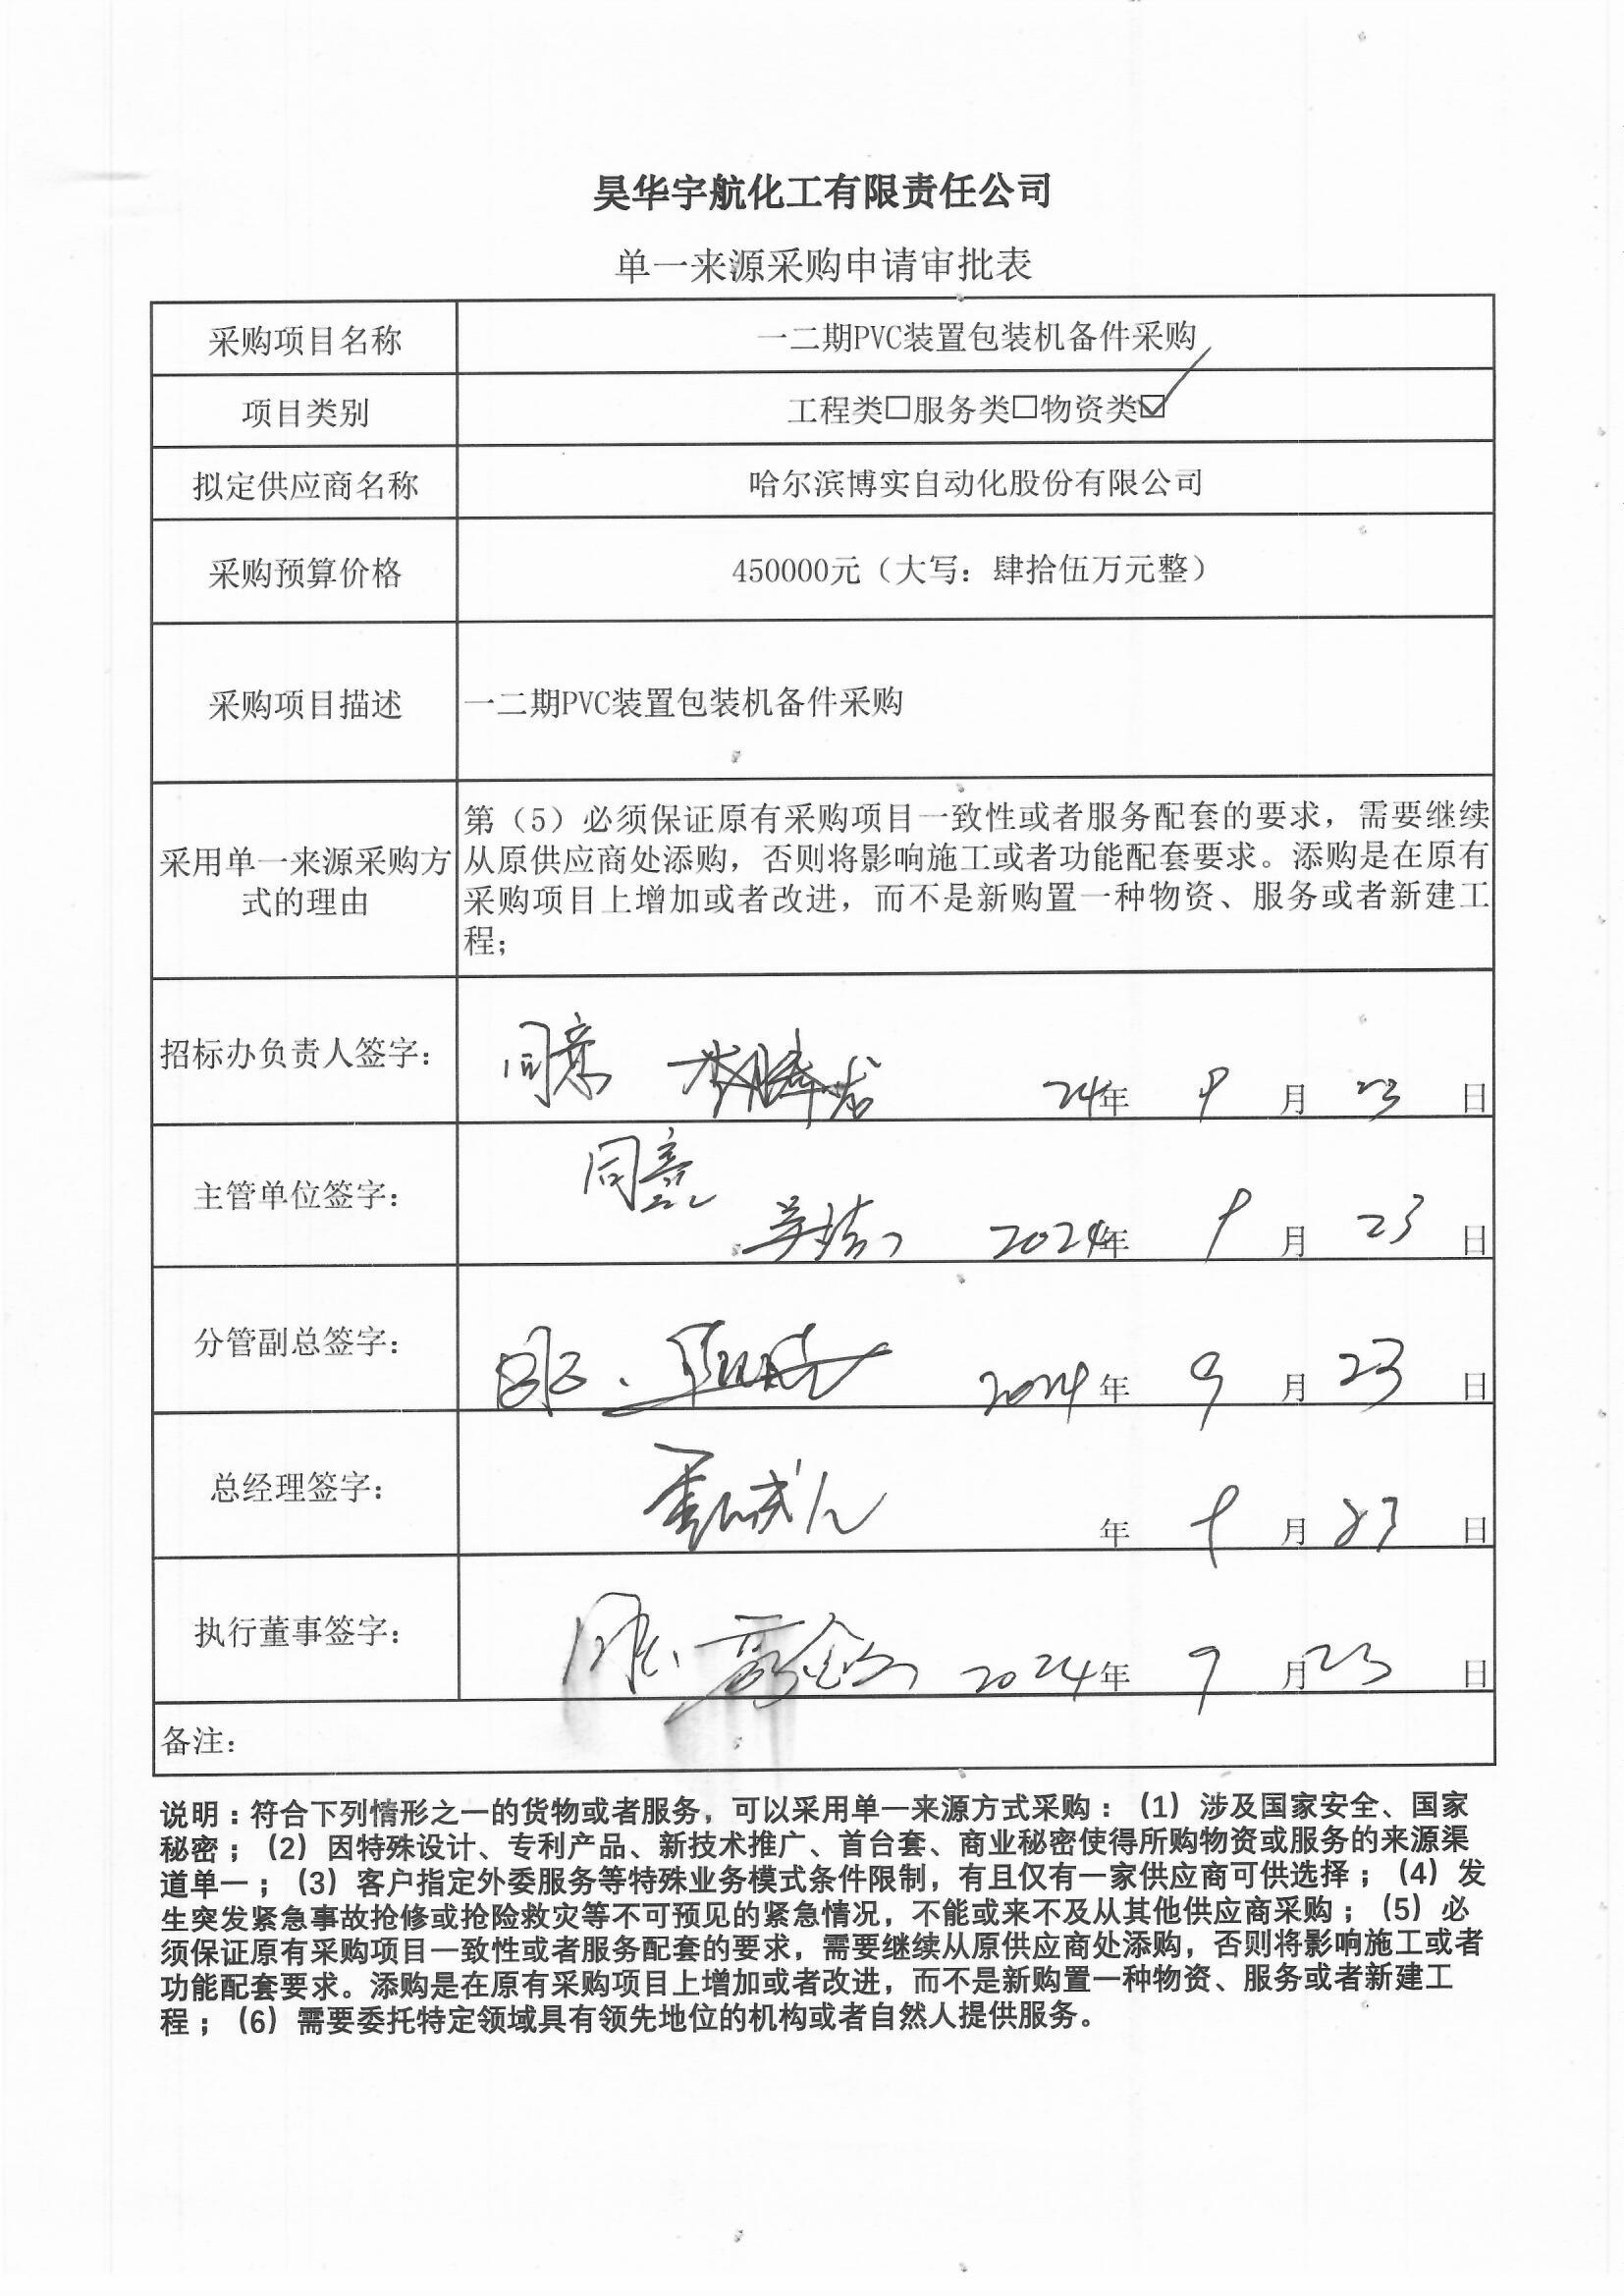 昊华宇航化工有限责任公司
单一来源采购申请审批表
采购项目名称
一二期PVC装置包装机备件采购
项目类别
工程类□服务类□物资类☑
拟定供应商名称
哈尔滨博实自动化股份有限公司
采购预算价格
450000元（大写：肆拾伍万元整）
采购项目描述
一二期PVC装置包装机备件采购
采用单一来源采购方
式的理由
第（5）必须保证原有采购项目一致性或者服务配套的要求，需要继续
从原供应商处添购，否则将影响施工或者功能配套要求。添购是在原有
采购项目上增加或者改进，而不是新购置一种物资、服务或者新建工
程；
招标办负责人签字：
同意
24年 9 月 23 日
主管单位签字：
同意
2024年 9 月 23 日
分管副总签字：
2024年 9 月 23 日
总经理签字：
年 9 月 23 日
执行董事签字：
2024年 9 月 23 日
备注：
说明：符合下列情形之一的货物或者服务，可以采用单一来源方式采购：（1）涉及国家安全、国家
秘密；（2）因特殊设计、专利产品、新技术推广、首台套、商业秘密使得所购物资或服务的来源渠
道单一；（3）客户指定外委服务等特殊业务模式条件限制，有且仅有一家供应商可供选择；（4）发
生突发紧急事故抢修或抢险救灾等不可预见的紧急情况，不能或来不及从其他供应商采购；（5）必
须保证原有采购项目一致性或者服务配套的要求，需要继续从原供应商处添购，否则将影响施工或者
功能配套要求。添购是在原有采购项目上增加或者改进，而不是新购置一种物资、服务或者新建工
程；（6）需要委托特定领域具有领先地位的机构或者自然人提供服务。